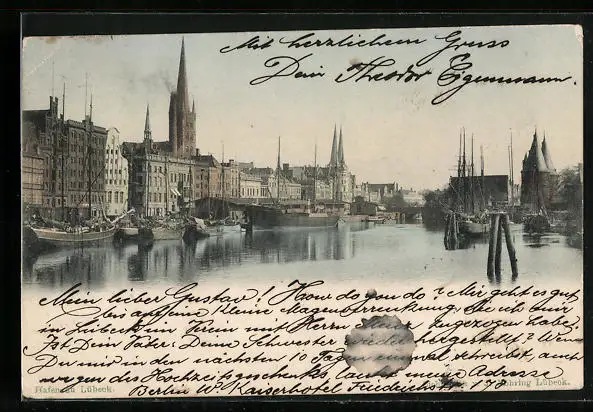 Mit herzlichem Gruss
Dein Theodor Egenmann.
Mein lieber Gustav! How do you do? Mir geht es gut
bis auf eine kleine Magenverrenkung, die ich mir
in Lübeck im Verein mit Herrn zugezogen habe.
Ist Dein Vater & Deine Schwester wieder hergestellt? Wenn
Du mir in den nächsten 10 Tagen einmal schreibst, auch
wegen des Hochzeitsgeschenks, lautet meine Adresse
Berlin W Kaiserhotel Friedrichstr
Hafen zu Lübeck.
Nöhring Lübeck.